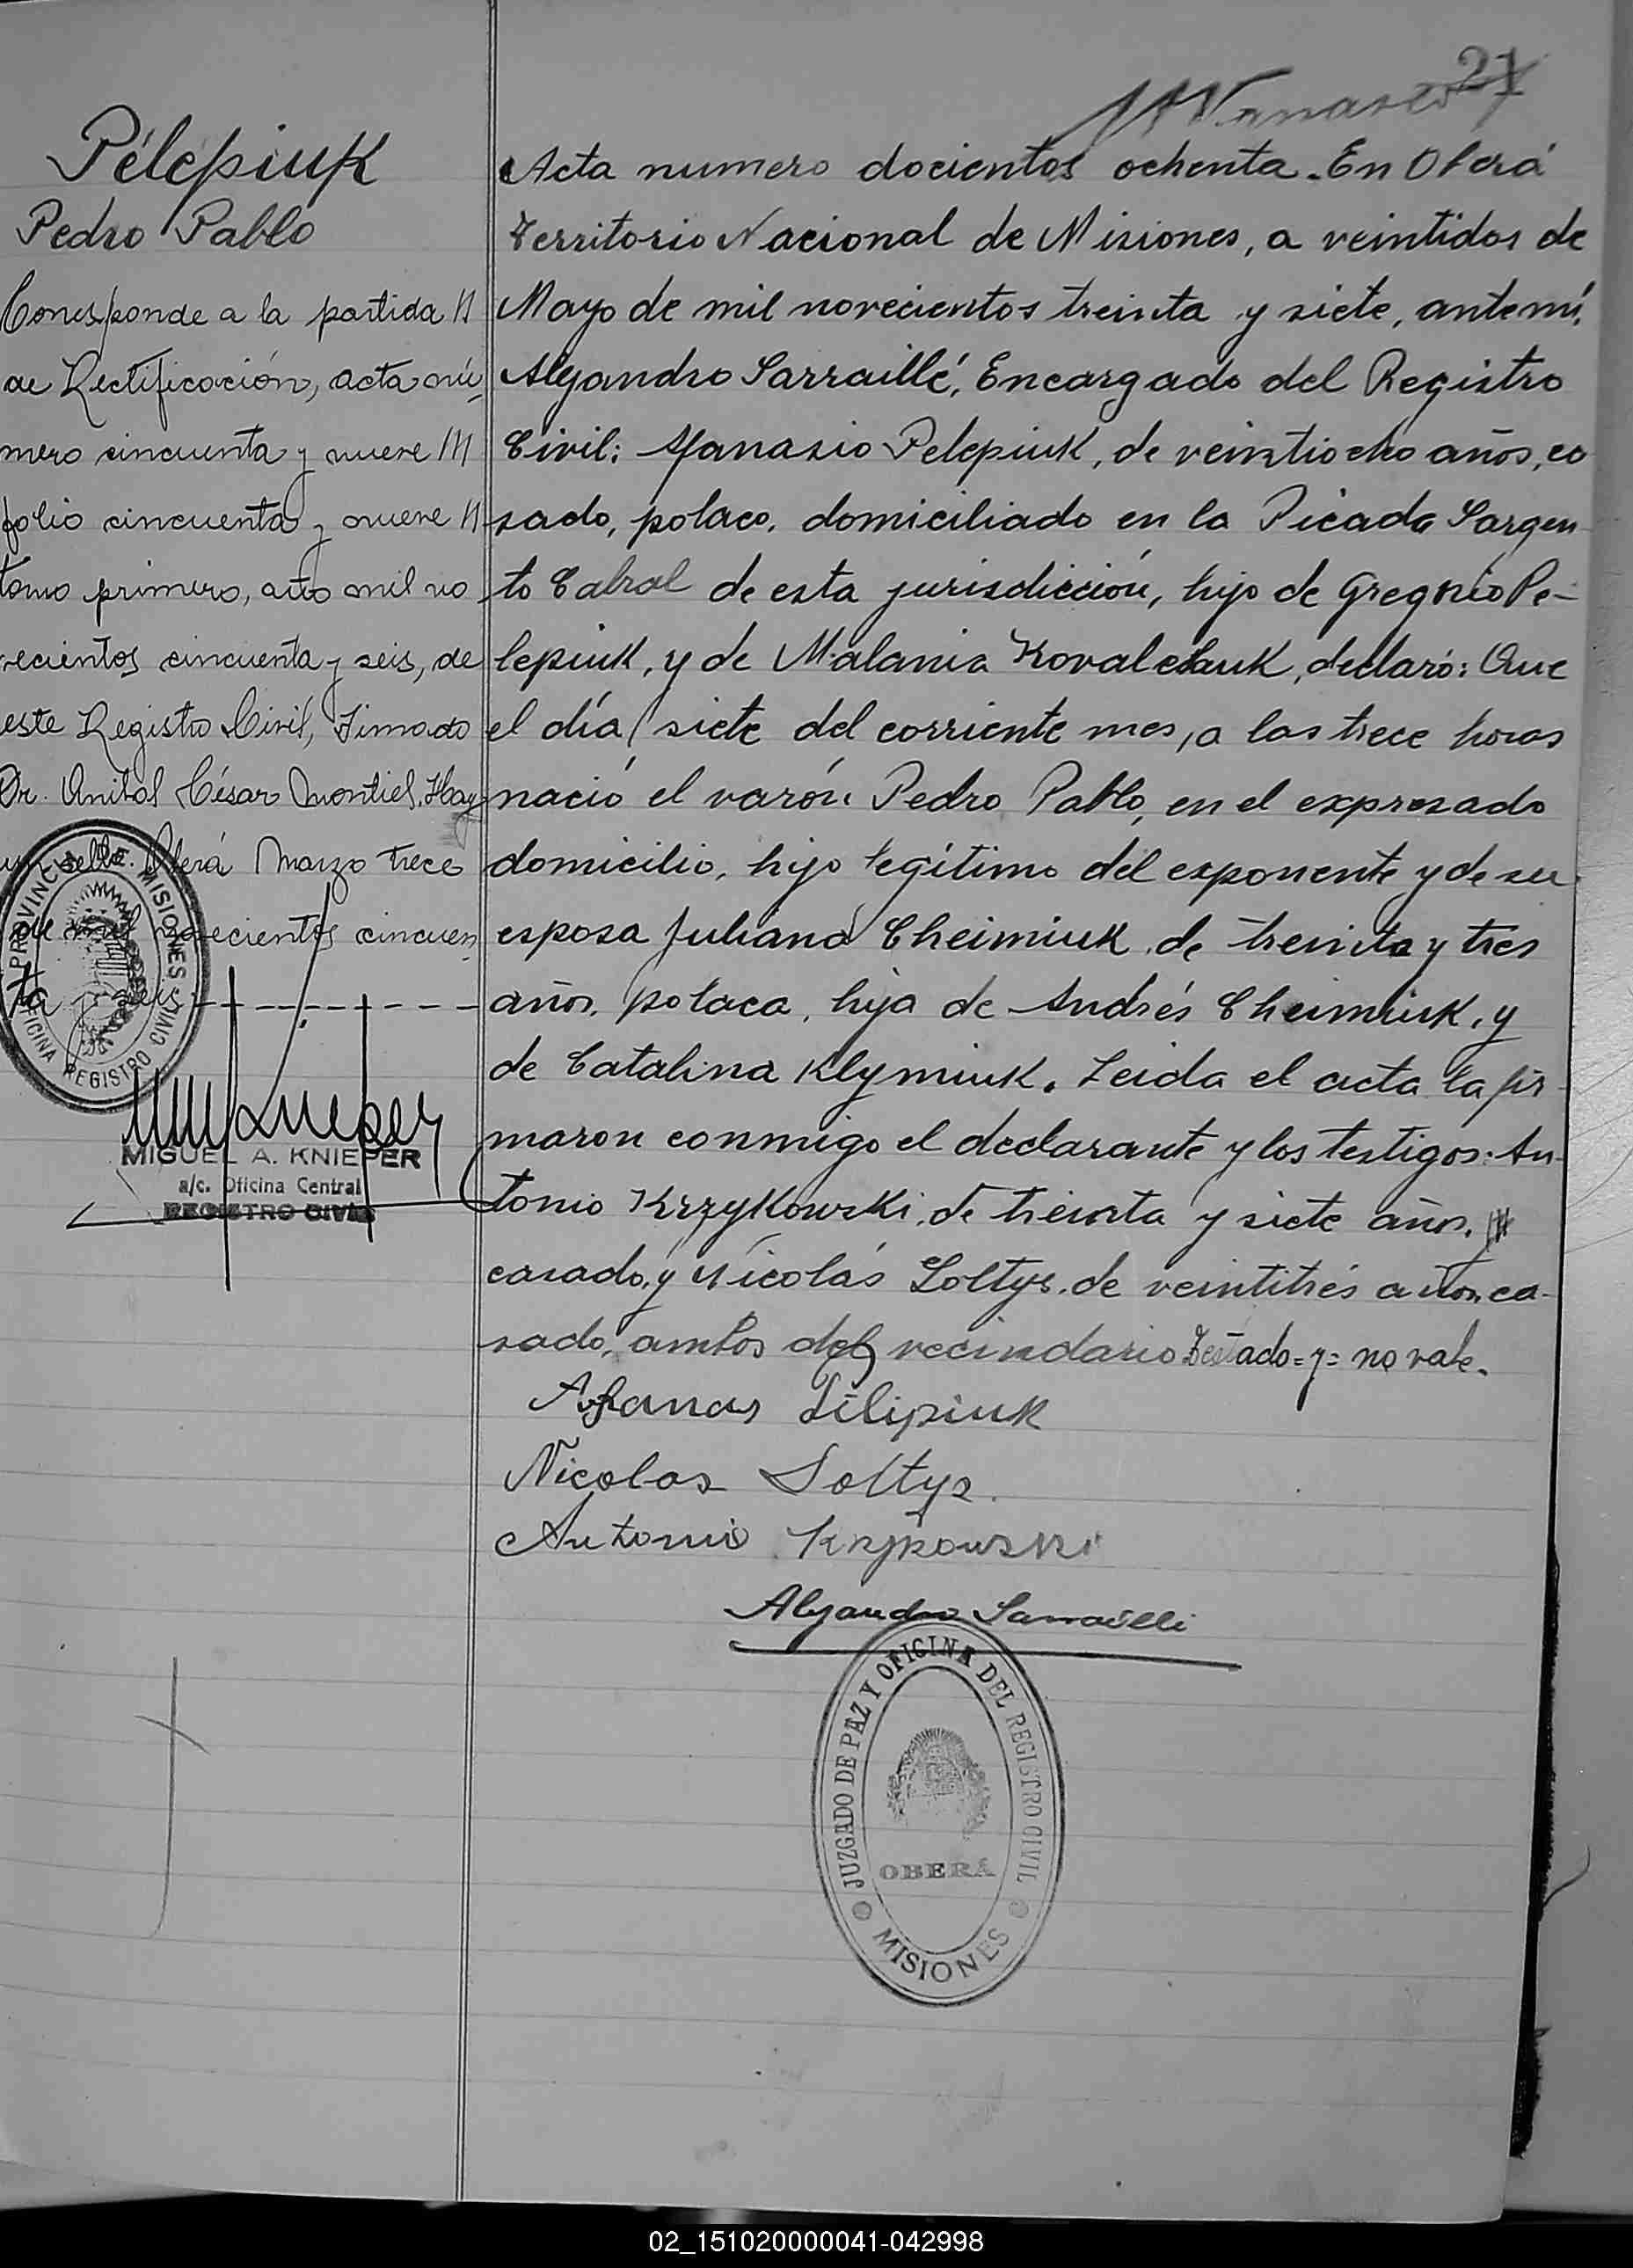 27
Pelepiuk
Pedro Pablo
Corresponde a la partida
de Rectificación, acta nú-
mero cincuenta y nueve
folio cincuenta y nueve
tomo primero, año mil no
vecientos cincuenta y seis, de
este Registro Civil, Firmado
Dr. Anibal César Montiel. Hay
un sello. Oberá Marzo trece
de mil novecientos cincuen
ta y seis
PROVINCIA DE MISIONES
OFICINA REGISTRO CIVIL
MIGUEL A. KNIEPER
a/c. Oficina Central
REGISTRO CIVIL
Acta numero docientos ochenta. En Oberá
Territorio Nacional de Misiones, a veintidos de
Mayo de mil novecientos treinta y siete, ante mi,
Alejandro Sarraillé, Encargado del Registro
Civil: Afanasio Pelepiuk, de veintiocho años, ca
sado, polaco, domiciliado en la Picada Sargen
to Cabral de esta jurisdicción, hijo de Gregorio Pe-
lepiuk, y de Malania Kovalchuk, declaró: Que
el día siete del corriente mes, a las trece horas
nació el varón Pedro Pablo, en el expresado
domicilio, hijo legítimo del exponente y de su
esposa Juliana Cheimiuk, de treinta y tres
años, polaca, hija de Andrés Cheimiuk, y
de Catalina Klymiuk. Leida el acta la fir
maron conmigo el declarante y los testigos: An-
tonio Krzykowski, de treinta y siete años,
casado, y Nicolás Soltys, de veintitrés años, ca-
sado, ambos del vecindario Testado = y = no vale.
Afanas Pilipiuk
Nicolas Soltys
Antonio Krzykowski
Alejandro Sarraillé
JUZGADO DE PAZ Y OFICINA DEL REGISTRO CIVIL
OBERÁ
MISIONES
02_151020000041-042998